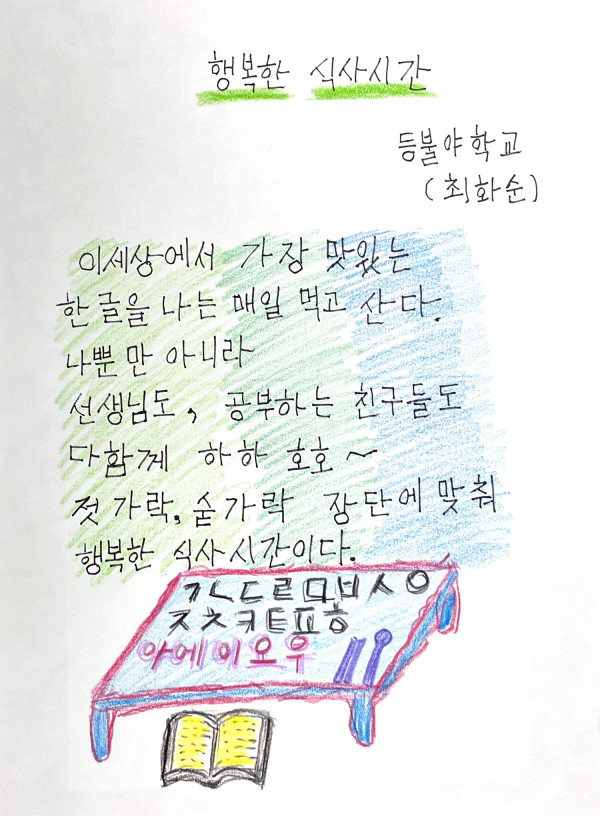 행복한 식사시간
등불야학교
(최화순)
이세상에서 가장 맛있는
한글을 나는 매일 먹고 산다.
나뿐만 아니라
선생님도, 공부하는 친구들도
다함께 하하 호호~
젓가락, 숟가락 장단에 맞춰
행복한 식사시간이다.
ㄱㄴㄷㄹㅁㅂㅅㅇ
ㅈㅊㅋㅌㅍㅎ
아에이오우